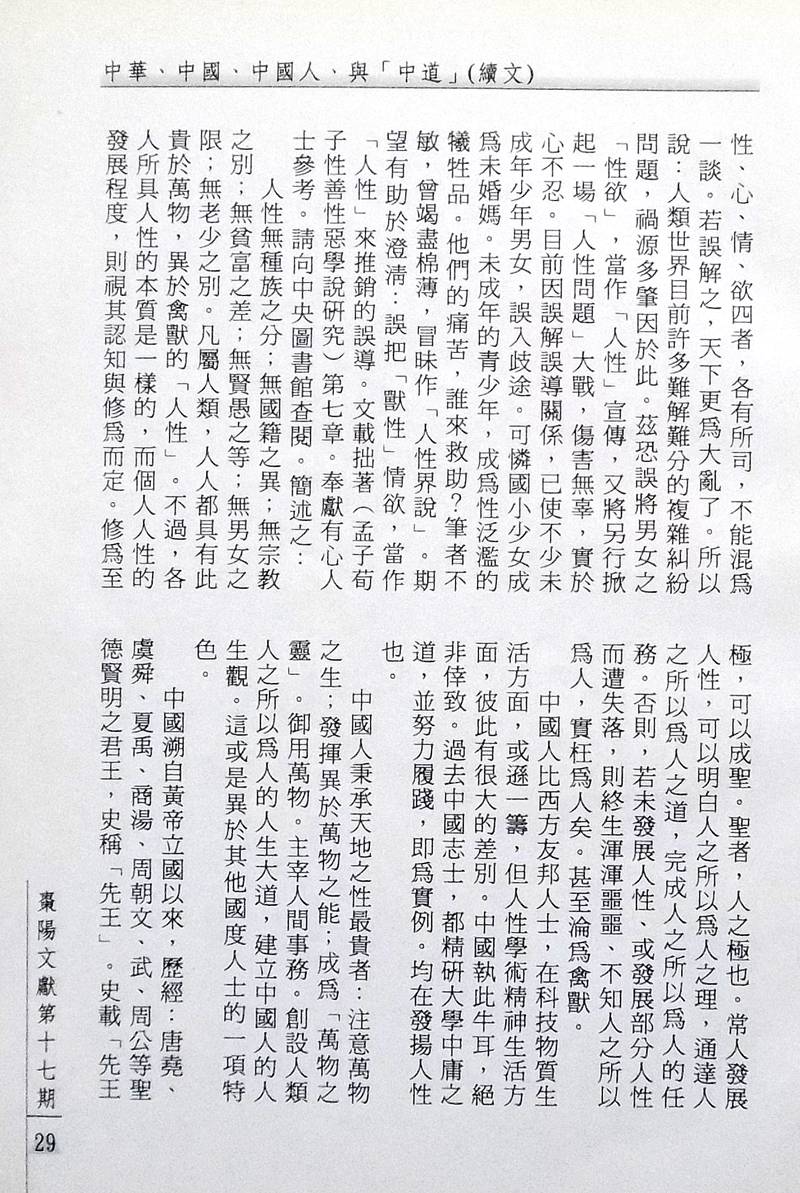 中華、中國、中國人、與「中道」(續文)
性、心、情、欲四者，各有所司，不能混爲
一談。若誤解之，天下更爲大亂了。所以
說：人類世界目前許多難解難分的複雜糾紛
問題，禍源多肇因於此。茲恐誤將男女之
「性欲」，當作「人性」宣傳，又將另行掀
起一場「人性問題」大戰，傷害無辜，實於
心不忍。目前因誤解誤導關係，已使不少未
成年少年男女，誤入歧途。可憐國小少女成
爲未婚媽。未成年的青少年，成爲性泛濫的
犧牲品。他們的痛苦，誰來救助？筆者不
敏，曾竭盡棉薄，冒昧作「人性界說」。期
望有助於澄清：誤把「獸性」情欲，當作
「人性」來推銷的誤導。文載拙著（孟子荀
子性善性惡學說研究）第七章。奉獻有心人
士參考。請向中央圖書館查閱。簡述之：
人性無種族之分；無國籍之異；無宗教
之別；無貧富之差；無賢愚之等；無男女之
限；無老少之別。凡屬人類，人人都具有此
貴於萬物，異於禽獸的「人性」。不過，各
人所具人性的本質是一樣的，而個人人性的
發展程度，則視其認知與修爲而定。修爲至
極，可以成聖。聖者，人之極也。常人發展
人性，可以明白人之所以爲人之理，通達人
之所以爲人之道，完成人之所以爲人的任
務。否則，若未發展人性、或發展部分人性
而遭失落，則終生渾渾噩噩、不知人之所以
爲人，實枉爲人矣。甚至淪爲禽獸。
中國人比西方友邦人士，在科技物質生
活方面，或遜一籌，但人性學術精神生活方
面，彼此有很大的差別。中國執此牛耳，絕
非倖致。過去中國志士，都精研大學中庸之
道，並努力履踐，即爲實例。均在發揚人性
也。
中國人秉承天地之性最貴者：注意萬物
之生；發揮異於萬物之能；成爲「萬物之
靈」。御用萬物。主宰人間事務。創設人類
人之所以爲人的人生大道，建立中國人的人
生觀。這或是異於其他國度人士的一項特
色。
中國溯自黃帝立國以來，歷經：唐堯、
虞舜、夏禹、商湯、周朝文、武、周公等聖
德賢明之君王，史稱「先王」。史載「先王
棗陽文獻第十七期
29